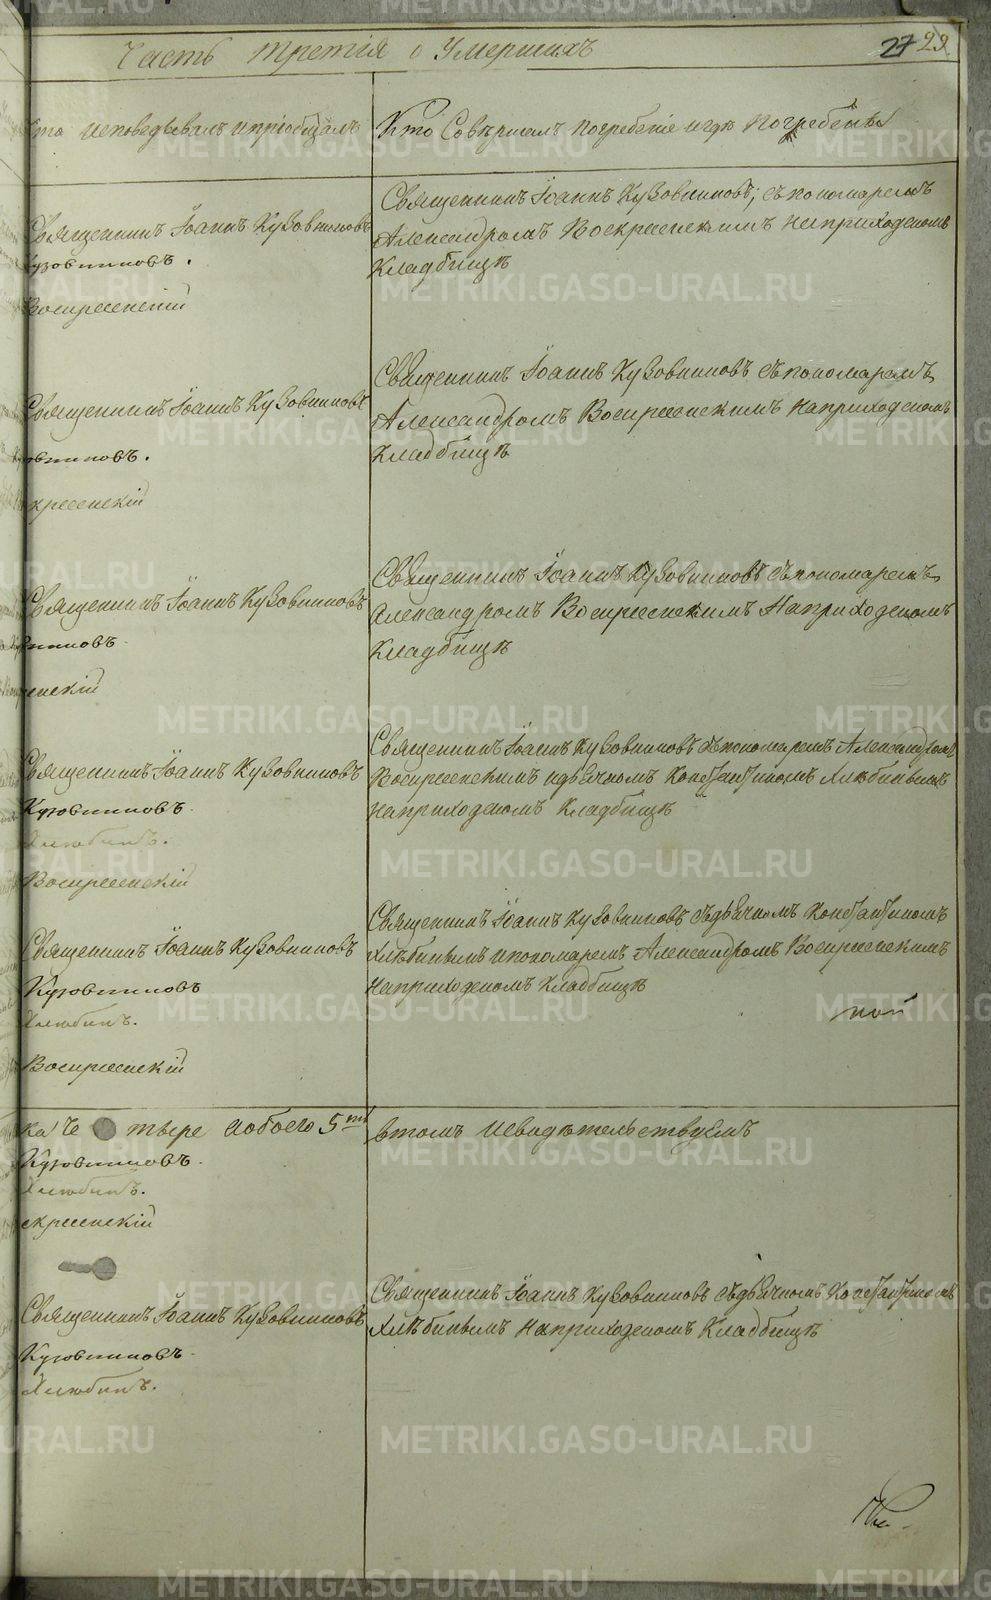 Часть третія о Умершихъ
27 29
Кто исповедывалъ и пріобщалъ
Кто Совершалъ погребеніе и где Погребены
Священникъ Іоаннъ Кузовниковъ
Кузовниковъ.
Воскресенскій
Священникъ Іоаннъ Кузовниковъ, съ пономаремъ
Александромъ Воскресенскимъ на приходскомъ
Кладбищѣ
Священникъ Іоаннъ Кузовниковъ
овниковъ.
кресенскій
Священникъ Іоаннъ Кузовниковъ съ пономаремъ
Александромъ Воскресенскимъ на приходскомъ
Кладбищѣ
Священникъ Іоаннъ Кузовниковъ
вниковъ
енскій
Священникъ Іоаннъ Кузовниковъ съ пономаремъ
Александромъ Воскресенскимъ На приходскомъ
Кладбищѣ
Священникъ Іоаннъ Кузовниковъ
Кузовниковъ
Хлѣбинъ.
Воскресенскій
Священникъ Іоаннъ Кузовниковъ съ пономаремъ Александромъ
Воскресенскимъ и дьячкомъ Константиномъ Хлѣбинымъ
на приходскомъ Кладбищѣ
Священникъ Іоаннъ Кузовниковъ
Кузовниковъ
Хлѣбинъ.
Воскресенскій
Священникъ Іоаннъ Кузовниковъ съ дьячкомъ Константиномъ
Хлѣбинымъ и пономаремъ Александромъ Воскресенскимъ
На приходскомъ Кладбищѣ
ка че тыре а обоего 5
Кузовниковъ.
Хлѣбинъ.
кресенскій
в томъ и свидѣтельствуемъ
Священникъ Іоаннъ Кузовниковъ
Кузовниковъ
Хлѣбинъ.
Священникъ Іоаннъ Кузовниковъ съ дьячкомъ Константиномъ
Хлѣбинымъ На приходскомъ Кладбищѣ
METRIKI.GASO-URAL.RU